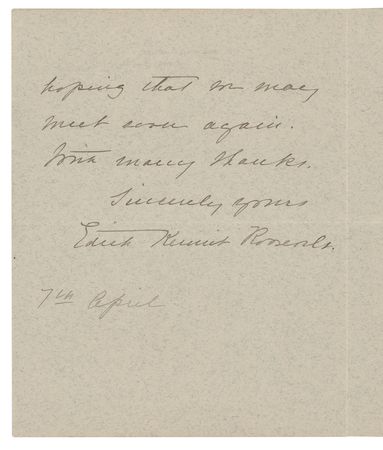 hoping that we may
meet soon again.
With many thanks.
Sincerely yours
Edith Kermit Roosevelt.
7th April